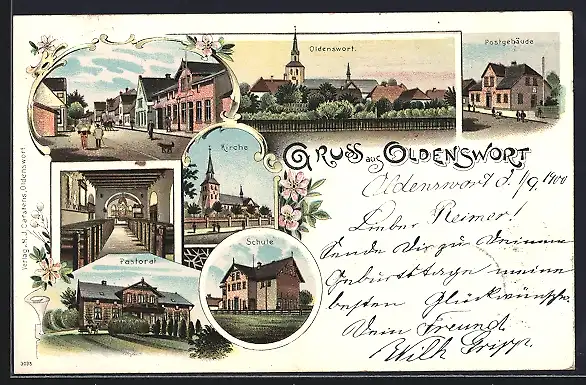 Oldenswort.
Postgebäude
Kirche
GRUSS aus OLDENSWORT
Oldenswort d. 1/9 1900
Lieber Reimer!
Sende Dir zu Deinem
Geburttage meine
besten Glückwünsche.
Dein Freund
Wilh Gripp.
Pastorat
Schule
Verlag v. N. J. Carstens, Oldenswort